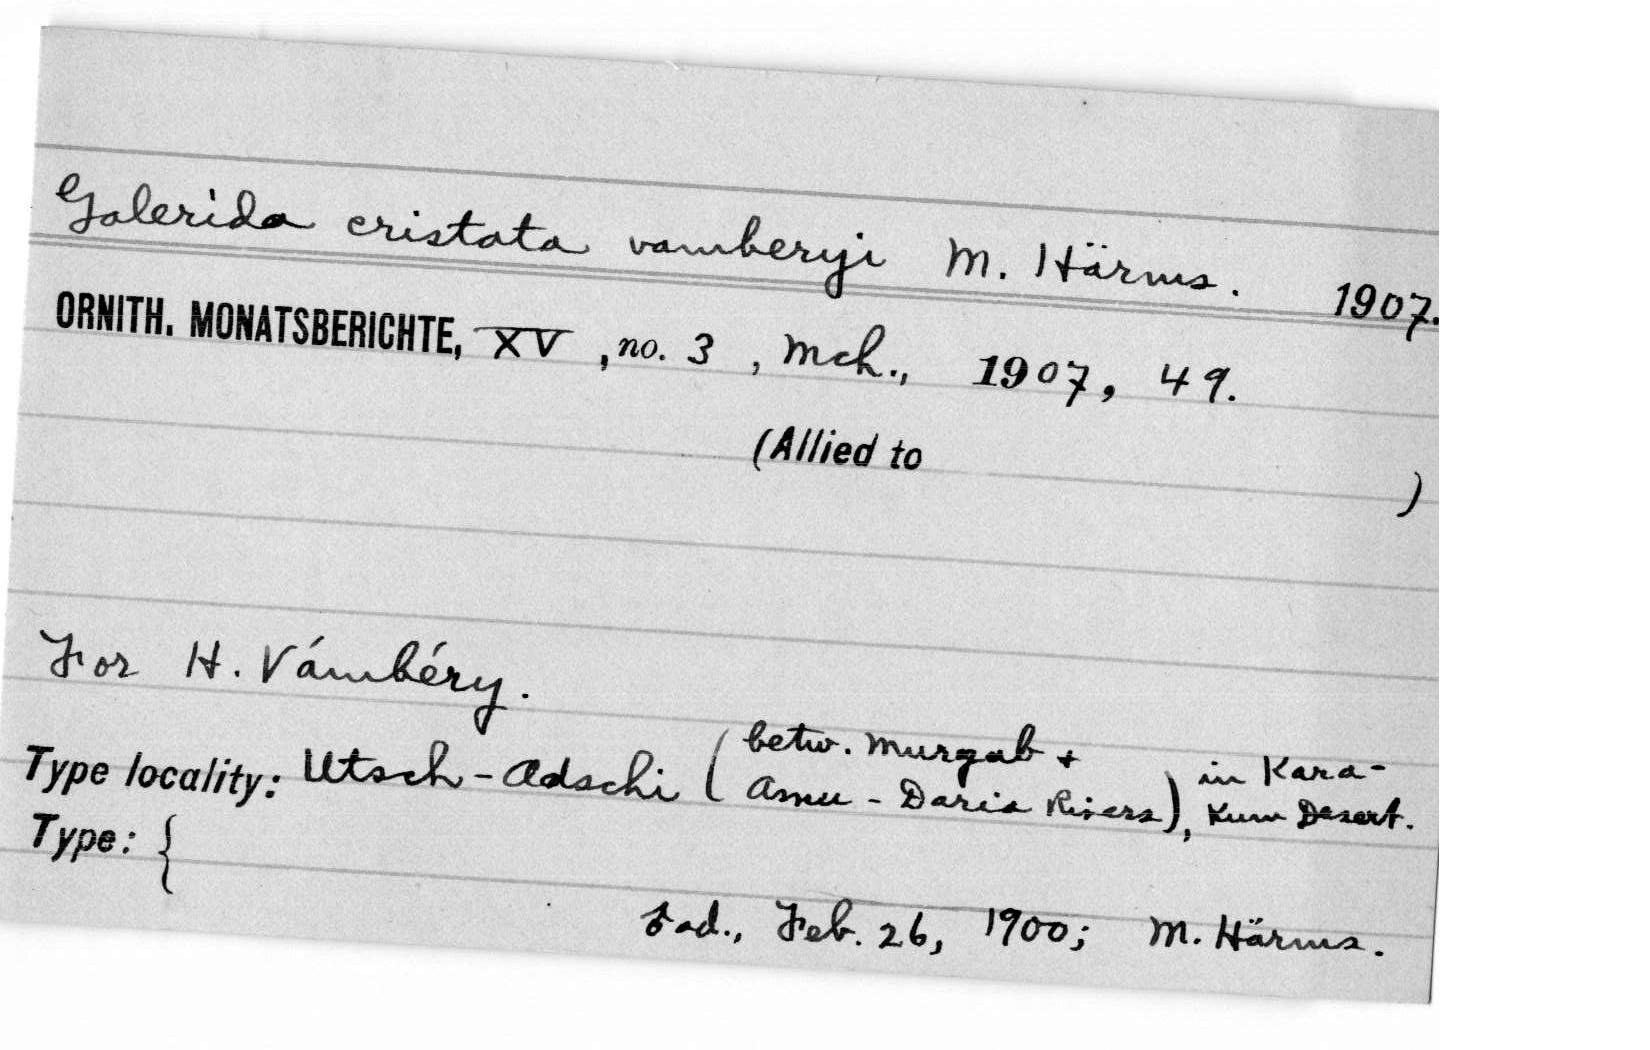 Galerida cristata vamberyi M. Härms. 1907.
ORNITH. MONATSBERICHTE, XV, no. 3, Mch., 1907, 49.
(Allied to )
For H. Vámbéry.
Type locality: Utsch-Adschi (betw. Murgab + Amu-Daria Rivers), in Kara-Kum Desert.
Type: {
ad., Feb. 26, 1900; M. Härms.